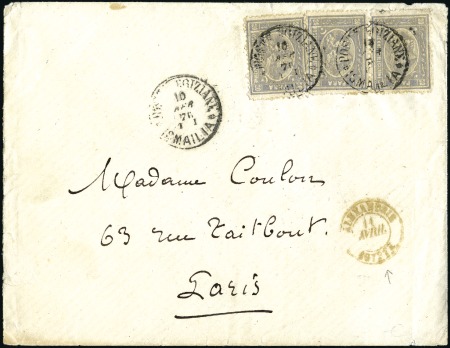 POSTE EGIZIANE
10
APR
76
ISMAILIA
Madame Coulon
63 rue Taitbout.
Paris
14
AVRIL